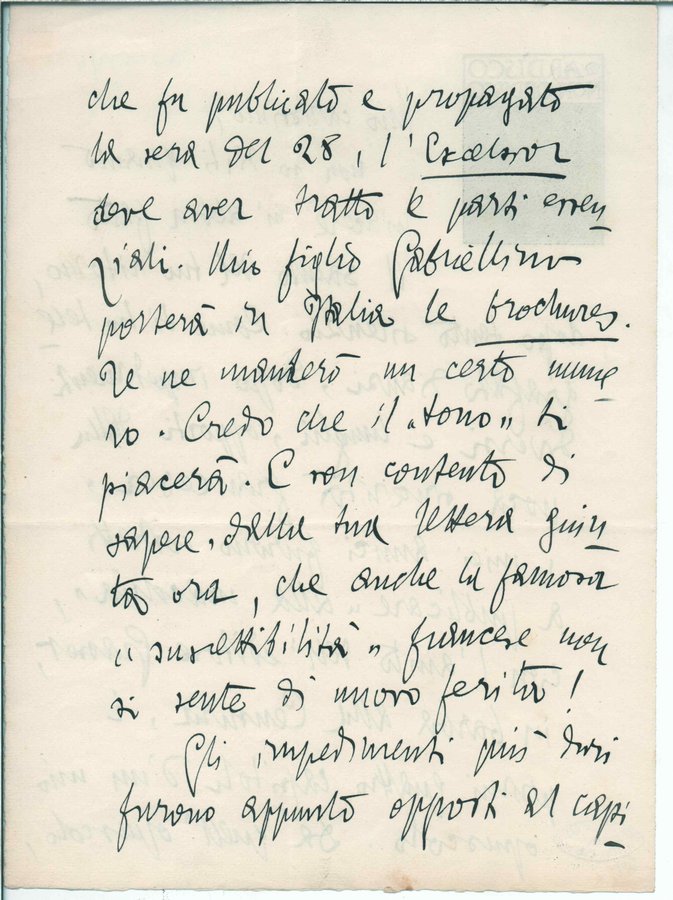 che fu publicato e propagato
la sera del 28, l'Excelsior
deve aver tratto le parti essen
ziali. Mio figlio Gabriellino
porterà in Italia le brochures.
Te ne manderò un certo nume
ro. Credo che il "tono" ti
piacerà. E son contento di
sapere, dalla tua lettera giun
ta ora, che anche la famosa
"suscettibilità" francese non
si sente di nuovo ferita!
Gli impedimenti più duri
furono appunto opposti al capi